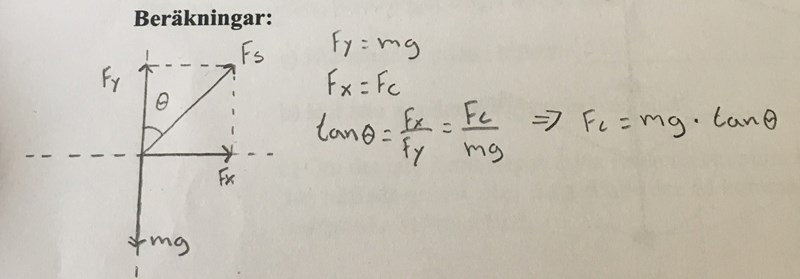 Beräkningar:
Fy
θ
Fs
Fx
mg
Fy = mg
Fx = Fc
tanθ = Fx/Fy = Fc/mg ⇒ Fc = mg · tanθ